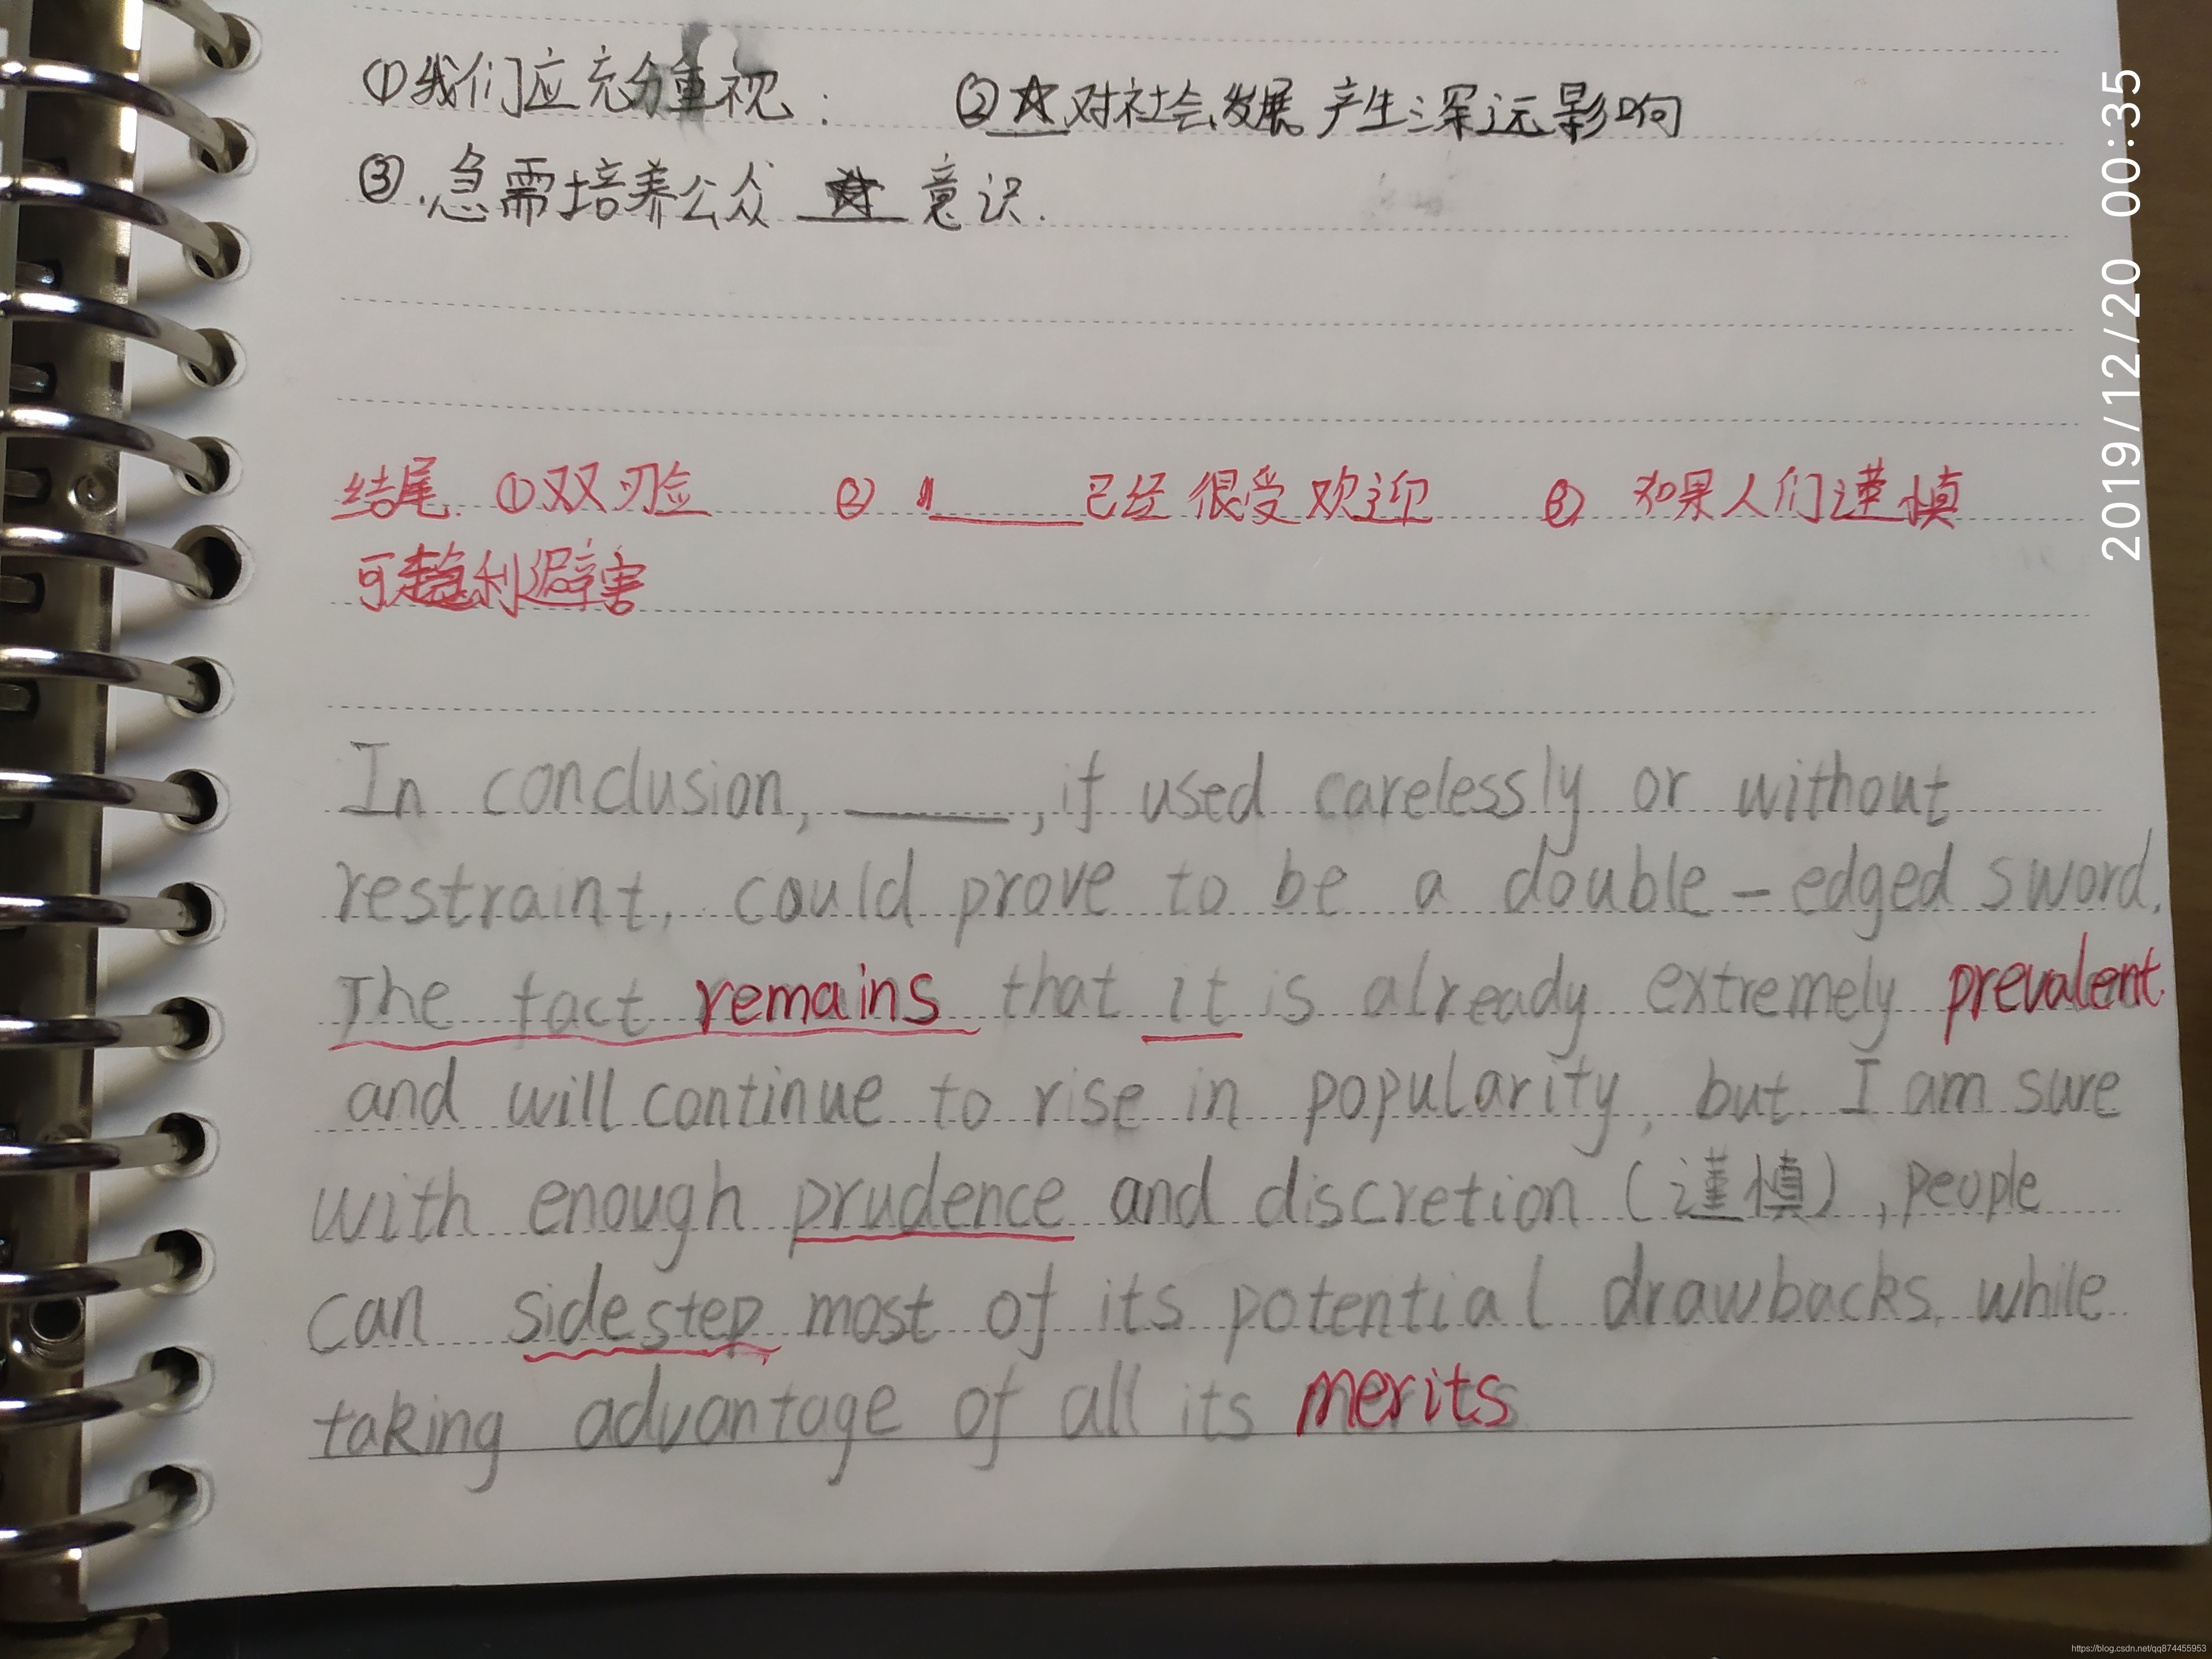 ①我们应充分重视: ②☆对社会发展产生深远影响
③.急需培养公众 ☆ 意识.
结尾. ①双刃剑 ② ____已经很受欢迎 ③ 如果人们谨慎
可趋利避害
In conclusion, ____, if used carelessly or without
restraint, could prove to be a double-edged sword.
The fact remains that it is already extremely prevalent
and will continue to rise in popularity, but I am sure
with enough prudence and discretion (谨慎), people
can sidestep most of its potential drawbacks, while
taking advantage of all its merits
2019/12/20 00:35
https://blog.csdn.net/qq874455953